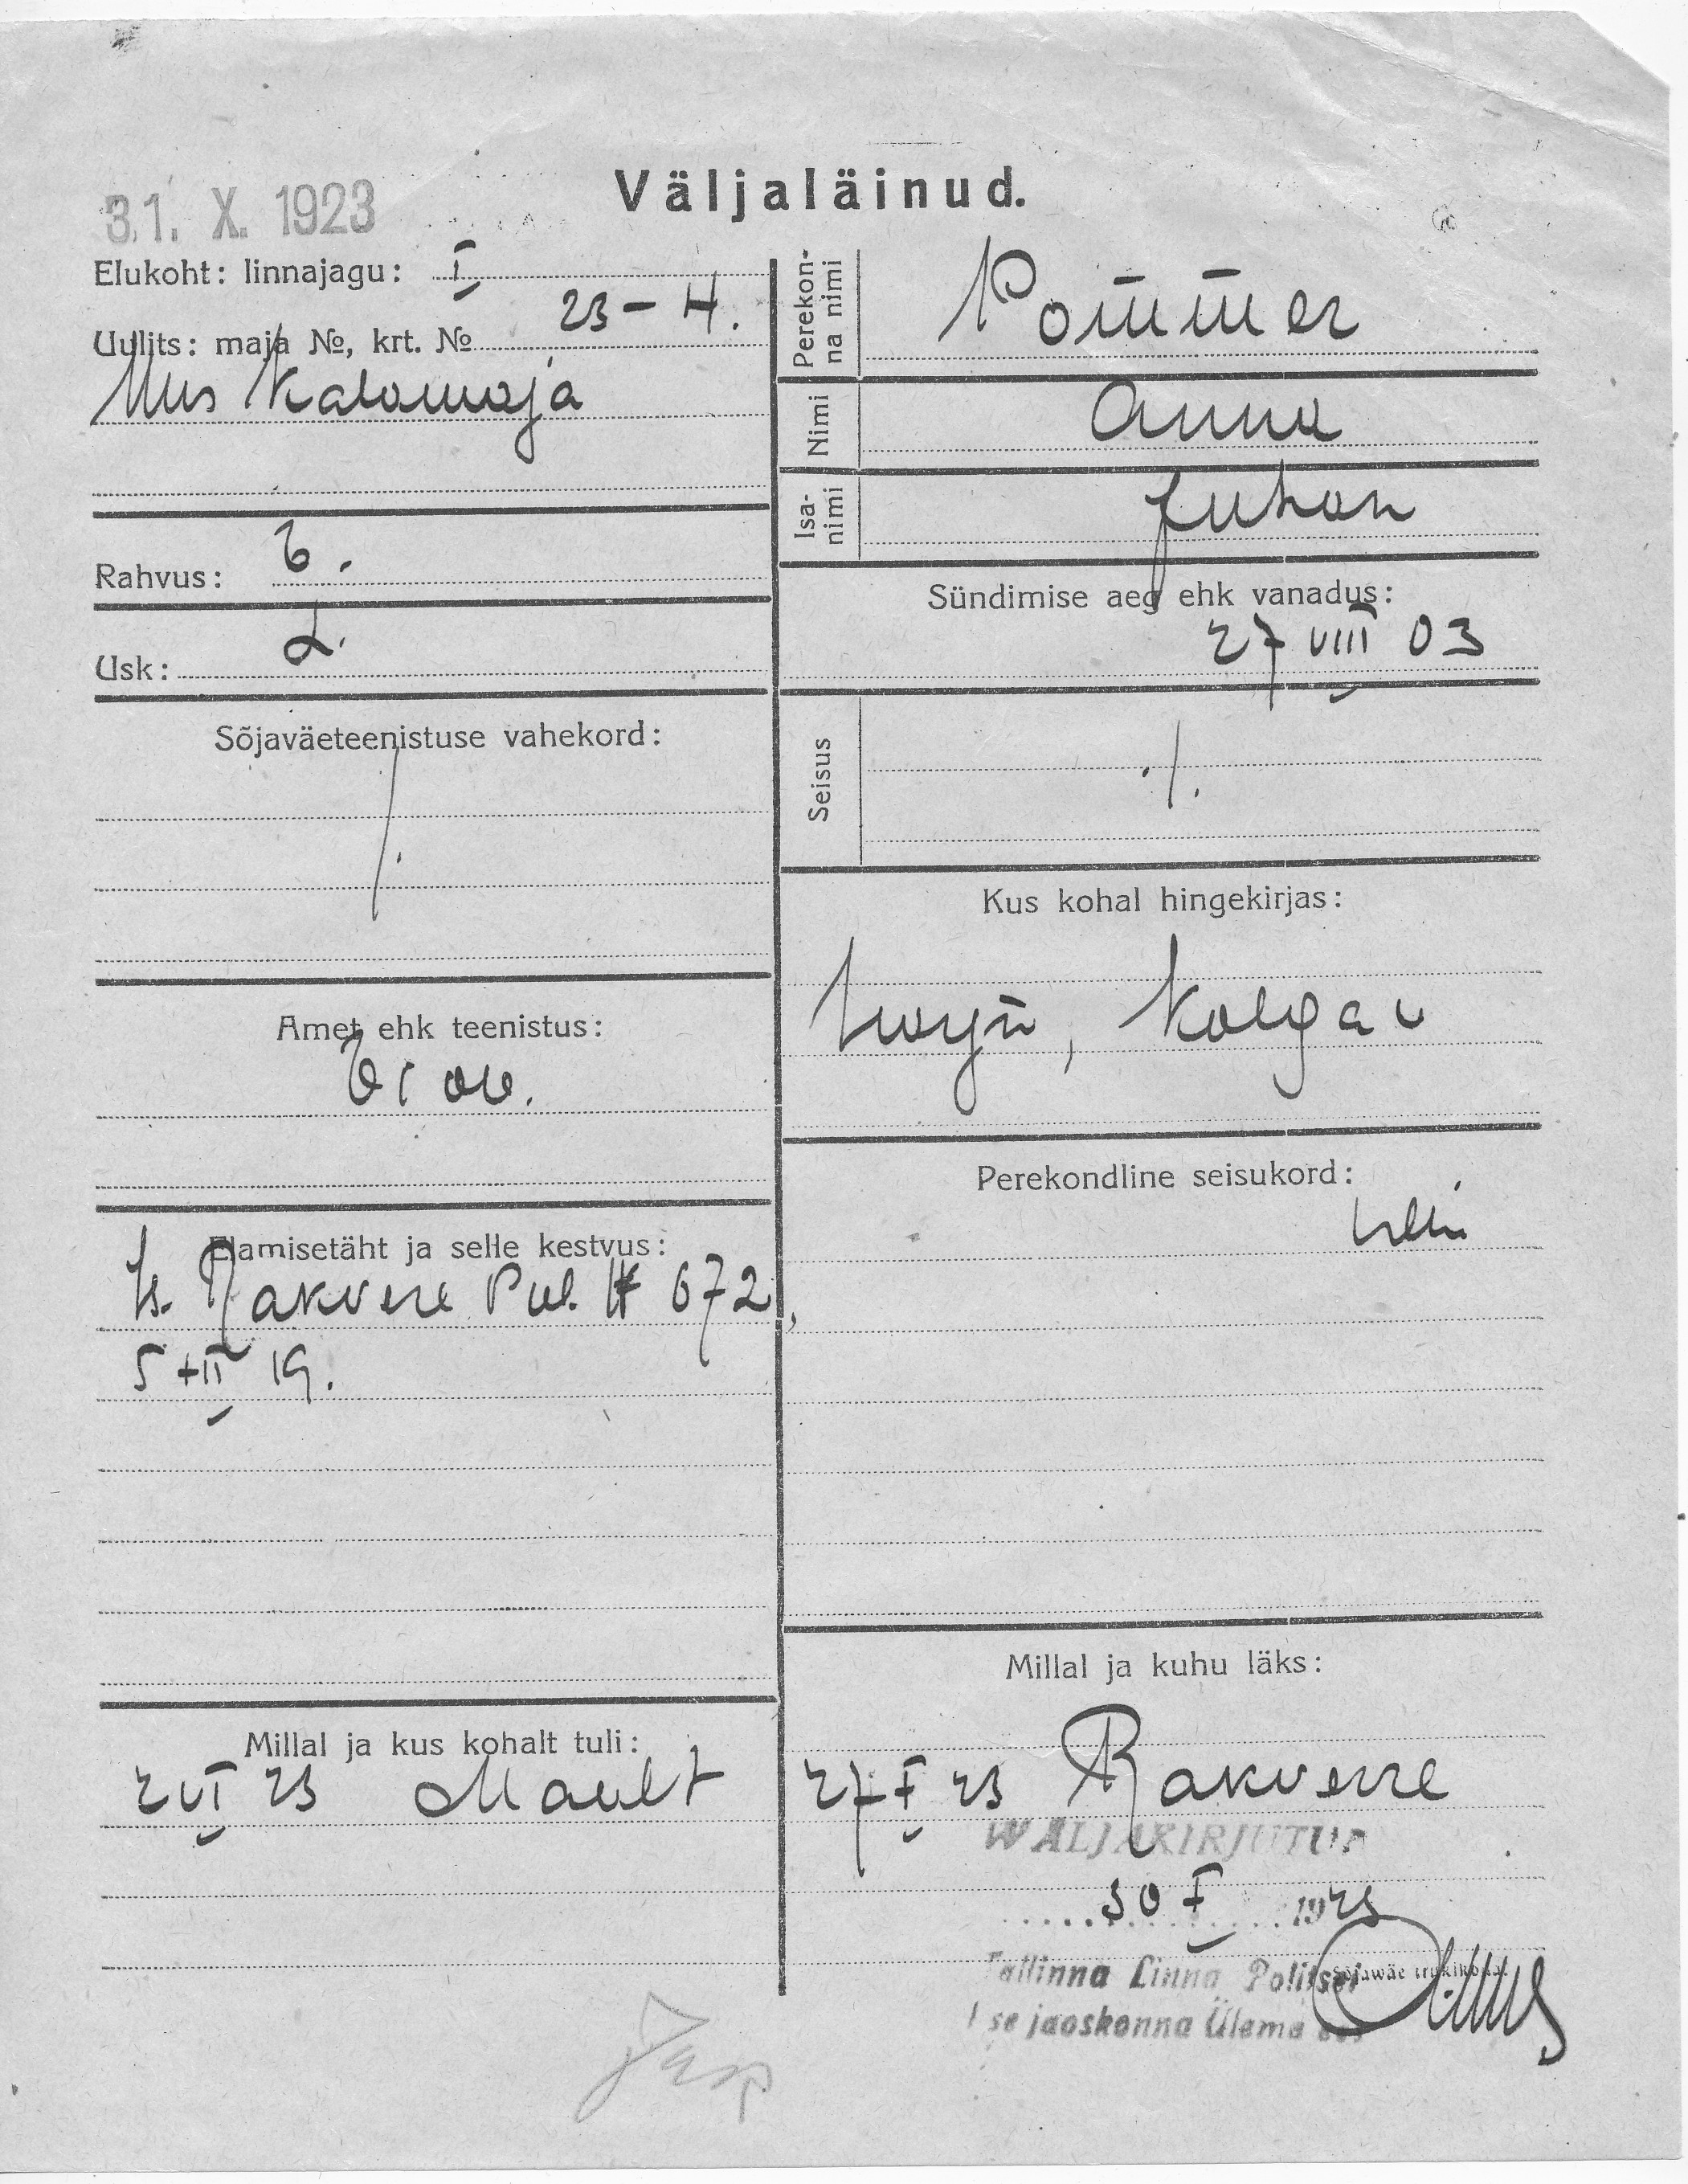 31. X. 1923
Väljaläinud.
Elukoht: linnajagu: I
Uulits: maja №, krt. № 23 – 4.
Uus Kalamaja
Rahvus: E.
Usk: L.
Sõjaväeteenistuse vahekord:
Amet ehk teenistus:
Elamisetäht ja selle kestvus:
Rakvere Pol. 672,
5 II 19.
Millal ja kus kohalt tuli:
23 Maalt
Perekonna nimi Pommer
Nimi Anna
Isanimi Juhan
Sündimise aeg ehk vanadus:
27 VIII 03
Seisus ./.
Kus kohal hingekirjas:
Kolga v
Perekondline seisukord:
Millal ja kuhu läks:
27 X 23 Rakverre
WÄLJAKIRJUTUD
30 X 1923
Tallinna Linna Politsei
I se jaoskonna Ülema
Sõjawäe trükikoda.